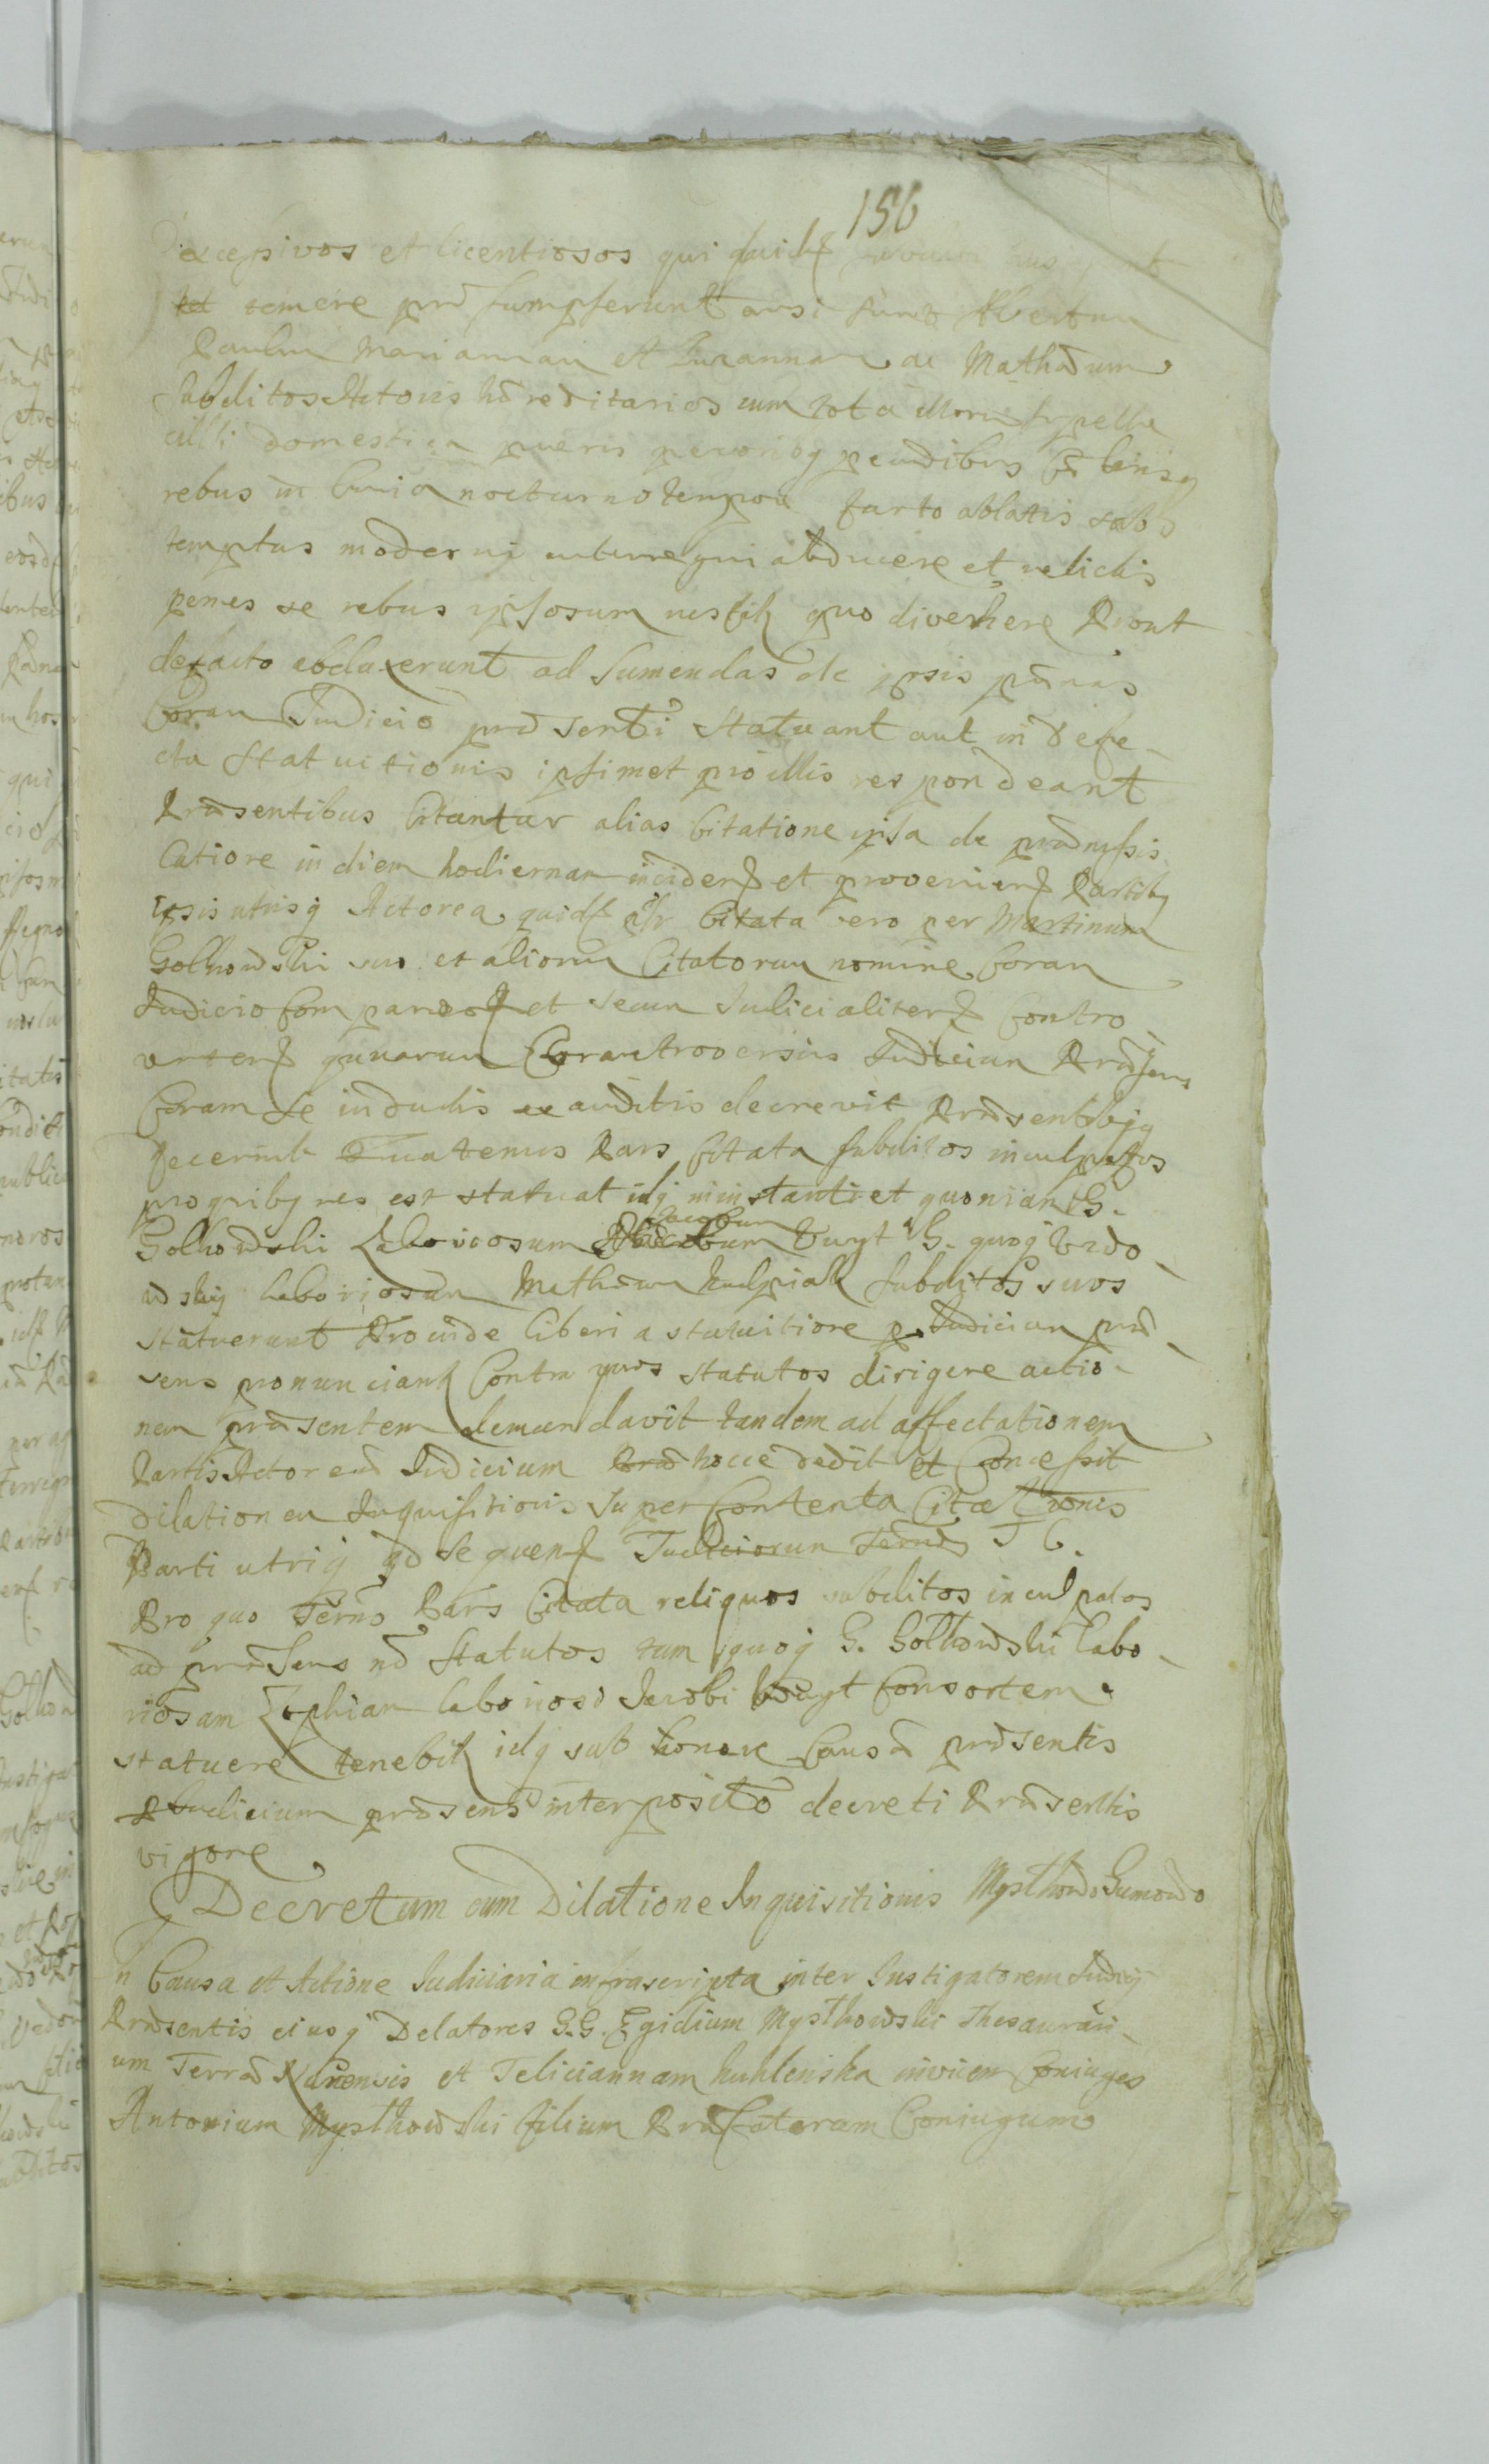 156
excessivos et licentiosos qui quidē
temere prē sumpserunt ausi sunt Albertum
Paulum Mariannam et Zuzannam ac Mathæum
Subditos Actoris hæreditarios cum tota illorum suppelle
ctili domestica pueris pecoribq pecudibus
rebus in Curia nocturno tempore furto ablatis sub
tempus moderni interregni abducere et relictis
penes se rebus ipsorum nescitr quo divehere Prout
defacto abduxerunt ad sumendas de ipsis pænas
Coram Judicio præsenti statuant aut in defe-
ctu statuitionis ipsimet pro illis respondeant
Præsentibus Citantur alias Citatione ipsa de præmissis
latiore in diem hodiernam inciden et provenien Partibq
ipsis utrisq Actorea quidē ipsr Citata vero per Martinum
Golkowski suo et aliorum Citatorum nomine Coram
Judicio Comparen et secum Judicialiter Contro-
verten quarum Controversiis Judicium Præsens
Coram se inductis et auditis decrevit Præsentibqq
decernit Quatenus Pars Citata subditos inculpatos
pro quibq res est statuat idq in instanti et quoniam G.
Golkowski Laboriosum Jacobum Wuyt G. quoq Wido-
wski laboriosum Mathæum Kulpiak subditos suos
statuerunt Proinde liberi a statuitione p Judicium præ-
sens pronunciantr Contra quos statutos dirigere actio-
nem præsentem demandavit tandem ad affectationem
Partis Actoreæ Judicium hocce dedit et Concessit
dilationem Inquisitionis super Contenta Citationis
Parti utriq ad sequen Judiciorum Termō T C.
Pro quo Termō Pars Citata reliquos subditos inculpatos
ad præsens nō statutos tum quoq G. Golkowski labo-
riosam Zophiam laboriosi Jacobi Wuyt Consortem
statuere tenebitr idq sub honore Causæ præsentis
p Judicium præsens interposito decreti Præsentis
vigore
Decretum cum Dilatione Inquisitionis Mystkowo Gumowo
n Causa et Actione Judiciaria infrascripta inter Instigatorem Judicij
Præsentis eiusq Delatores G.G. Egidium Mystkowski Thesaurari-
um Terræ Nurensis et Feliciannam Kuklenska invicem Coniuges
Antonium Mystkowski filium Præfatorum Coniugum